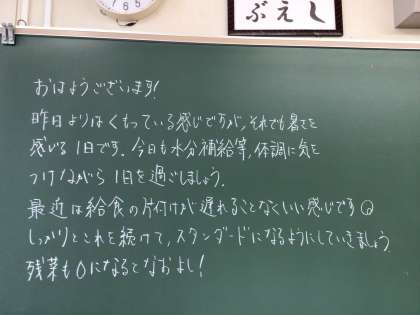 ぶえし
おはようございます!
昨日よりはくもっている感じですが、それでも暑さを
感じる1日です。今日も水分補給等、体調に気を
つけながら1日を過ごしましょう。
最近は給食の片付けが遅れることなくいい感じです
しっかりとこれを続けて、スタンダードになるようにしていきましょう
残菜も0になるとなおよし!